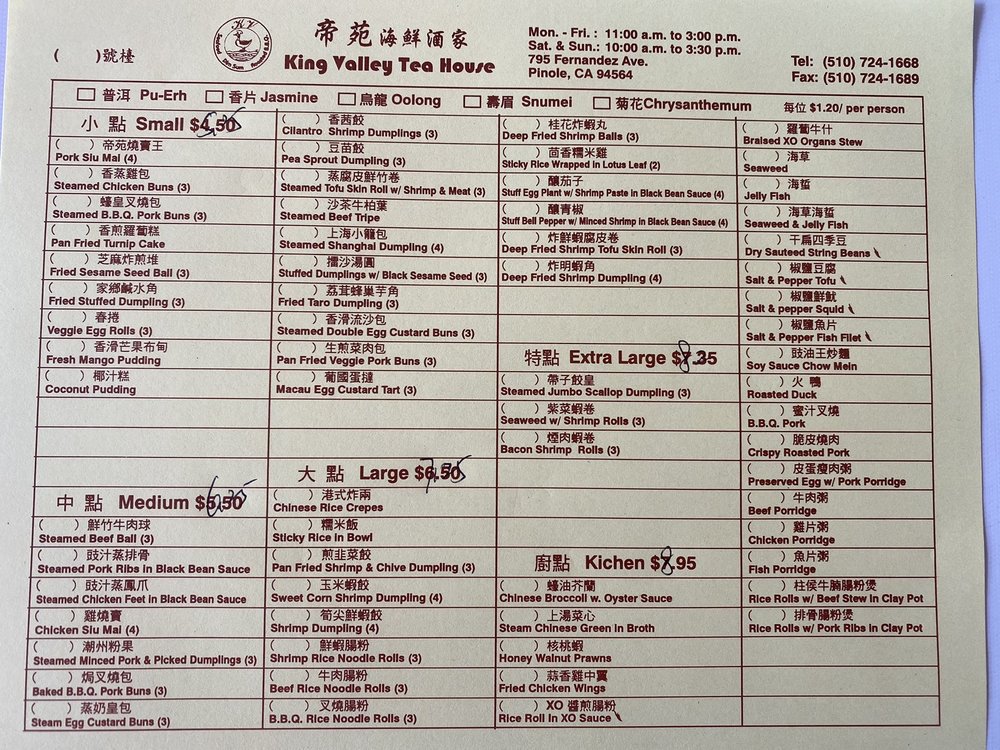 K V
Seafood Dim Sum Roasted B.B.Q.
帝苑海鮮酒家
King Valley Tea House
Mon. - Fri. : 11:00 a.m. to 3:00 p.m.
Sat. & Sun.: 10:00 a.m. to 3:30 p.m.
795 Fernandez Ave.
Pinole, CA 94564
Tel: (510) 724-1668
Fax: (510) 724-1689
( )號檯
普洱 Pu-Erh 香片 Jasmine 烏龍 Oolong 壽眉 Snumei 菊花Chrysanthemum 每位 $1.20/ per person
小 點 Small $4.50 5.25
( ) 帝苑燒賣王
Pork Siu Mai (4)
( ) 香蒸雞包
Steamed Chicken Buns (3)
( ) 蠔皇叉燒包
Steamed B.B.Q. Pork Buns (3)
( ) 香煎羅蔔糕
Pan Fried Turnip Cake
( ) 芝麻炸煎堆
Fried Sesame Seed Ball (3)
( ) 家鄉鹹水角
Fried Stuffed Dumpling (3)
( ) 春捲
Veggie Egg Rolls (3)
( ) 香滑芒果布甸
Fresh Mango Pudding
( ) 椰汁糕
Coconut Pudding
中 點 Medium $5.50 6.25
( ) 鮮竹牛肉球
Steamed Beef Ball (3)
( ) 豉汁蒸排骨
Steamed Pork Ribs in Black Bean Sauce
( ) 豉汁蒸鳳爪
Steamed Chicken Feet in Black Bean Sauce
( ) 雞燒賣
Chicken Siu Mai (4)
( ) 潮州粉果
Steamed Minced Pork & Picked Dumplings (3)
( ) 焗叉燒包
Baked B.B.Q. Pork Buns (3)
( ) 蒸奶皇包
Steam Egg Custard Buns (3)
( ) 香茜餃
Cilantro Shrimp Dumplings (3)
( ) 豆苗餃
Pea Sprout Dumpling (3)
( ) 蒸腐皮鮮竹卷
Steamed Tofu Skin Roll w/ Shrimp & Meat (3)
( ) 沙茶牛柏葉
Steamed Beef Tripe
( ) 上海小籠包
Steamed Shanghai Dumpling (4)
( ) 擂沙湯圓
Stuffed Dumplings w/ Black Sesame Seed (3)
( ) 荔茸蜂巢芋角
Fried Taro Dumpling (3)
( ) 香滑流沙包
Steamed Double Egg Custard Buns (3)
( ) 生煎菜肉包
Pan Fried Veggie Pork Buns (3)
( ) 葡國蛋撻
Macau Egg Custard Tart (3)
大 點 Large $6.50 7.25
( ) 港式炸兩
Chinese Rice Crepes
( ) 糯米飯
Sticky Rice in Bowl
( ) 煎韭菜餃
Pan Fried Shrimp & Chive Dumpling (3)
( ) 玉米蝦餃
Sweet Corn Shrimp Dumpling (4)
( ) 筍尖鮮蝦餃
Shrimp Dumpling (4)
( ) 鮮蝦腸粉
Shrimp Rice Noodle Rolls (3)
( ) 牛肉腸粉
Beef Rice Noodle Rolls (3)
( ) 叉燒腸粉
B.B.Q. Rice Noodle Rolls (3)
( ) 桂花炸蝦丸
Deep Fried Shrimp Balls (3)
( ) 茴香糯米雞
Sticky Rice Wrapped in Lotus Leaf (2)
( ) 釀茄子
Stuff Egg Plant w/ Shrimp Paste in Black Bean Sauce (4)
( ) 釀青椒
Stuff Bell Pepper w/ Minced Shrimp in Black Bean Sauce (4)
( ) 炸鮮蝦腐皮卷
Deep Fried Shrimp Tofu Skin Roll (3)
( ) 炸明蝦角
Deep Fried Shrimp Dumpling (4)
特點 Extra Large $7.35 8.
( ) 帶子餃皇
Steamed Jumbo Scallop Dumpling (3)
( ) 紫菜蝦卷
Seaweed w/ Shrimp Rolls (3)
( ) 煙肉蝦卷
Bacon Shrimp Rolls (3)
廚點 Kichen $8.95
( ) 蠔油芥蘭
Chinese Broccoli w. Oyster Sauce
( ) 上湯菜心
Steam Chinese Green in Broth
( ) 核桃蝦
Honey Walnut Prawns
( ) 蒜香雞中翼
Fried Chicken Wings
( ) XO 醬煎腸粉
Rice Roll In XO Sauce
( ) 羅蔔牛什
Braised XO Organs Stew
( ) 海草
Seaweed
( ) 海蜇
Jelly Fish
( ) 海草海蜇
Seaweed & Jelly Fish
( ) 干扁四季豆
Dry Sauteed String Beans
( ) 椒鹽豆腐
Salt & Pepper Tofu
( ) 椒鹽鮮魷
Salt & pepper Squid
( ) 椒鹽魚片
Salt & Pepper Fish Filet
( ) 豉油王炒麵
Soy Sauce Chow Mein
( ) 火 鴨
Roasted Duck
( ) 蜜汁叉燒
B.B.Q. Pork
( ) 脆皮燒肉
Crispy Roasted Pork
( ) 皮蛋瘦肉粥
Preserved Egg w/ Pork Porridge
( ) 牛肉粥
Beef Porridge
( ) 雞片粥
Chicken Porridge
( ) 魚片粥
Fish Porridge
( ) 柱侯牛腩腸粉煲
Rice Rolls w/ Beef Stew in Clay Pot
( ) 排骨腸粉煲
Rice Rolls w/ Pork Ribs in Clay Pot